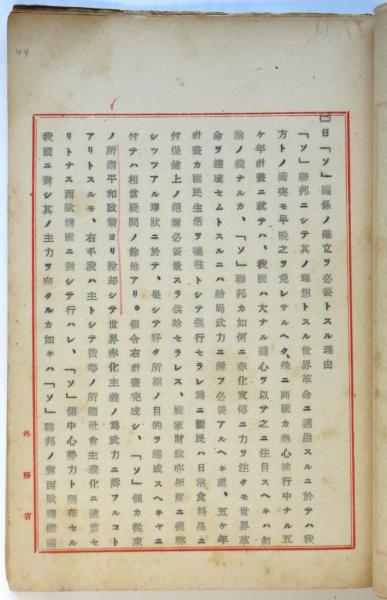 ㈡日「ソ」關係ノ確立ヲ必要トスル理由
「ソ」聯邦ニシテ其ノ理想トスル世界革命ニ邁進スルニ於テハ我
方トノ衝突モ早晩之ヲ免レサルヘク、殊ニ同國カ熱心遂行中ナル五
ケ年計畫ニ就テハ、我國ハ大ナル關心ヲ以テ之ニ注目スヘキハ勿
論ノ義ナルカ、「ソ」聯邦カ如何ニ赤化宣傳ニ力ヲ注クモ世界革
命ヲ達成セムトスルニハ結局武力ニ訴フ必要アルヘキ處、五ケ年
計畫カ國民生活ヲ犧牲トシテ强行セラレ爲ニ國民ハ日常食料品ニ
付保健上ノ絕對必要量スラ供給セラレス、國家財政亦極度ニ疲弊
シツツアル現狀ニ於テ、果シテ好ク所期ノ目的ヲ達成スヘキヤニ
付テハ相當疑問ノ餘地アリ。假令右計畫完成シ、「ソ」側カ從來
ノ所謂平和政策ヨリ脫却シテ世界赤化主義ノ爲武力ニ訴フルコト
アリトスルモ、右手段ハ主トシテ彼等ノ所謂社會主義化ニ適當セ
リトナス西歐諸國ニ對シテ行ハレ、「ソ」領中心勢力ト隔在セル
我國ニ對シ其ノ主力ヲ向クルカ如キハ「ソ」聯邦ノ對西歐諸國關
外務省
44